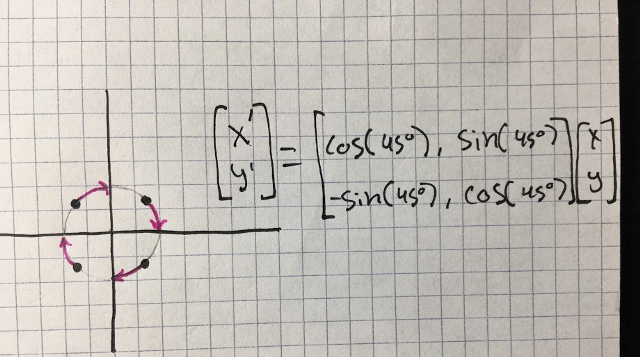 [x'
y'] = [cos(45°), sin(45°)
-sin(45°), cos(45°)] [x
y]